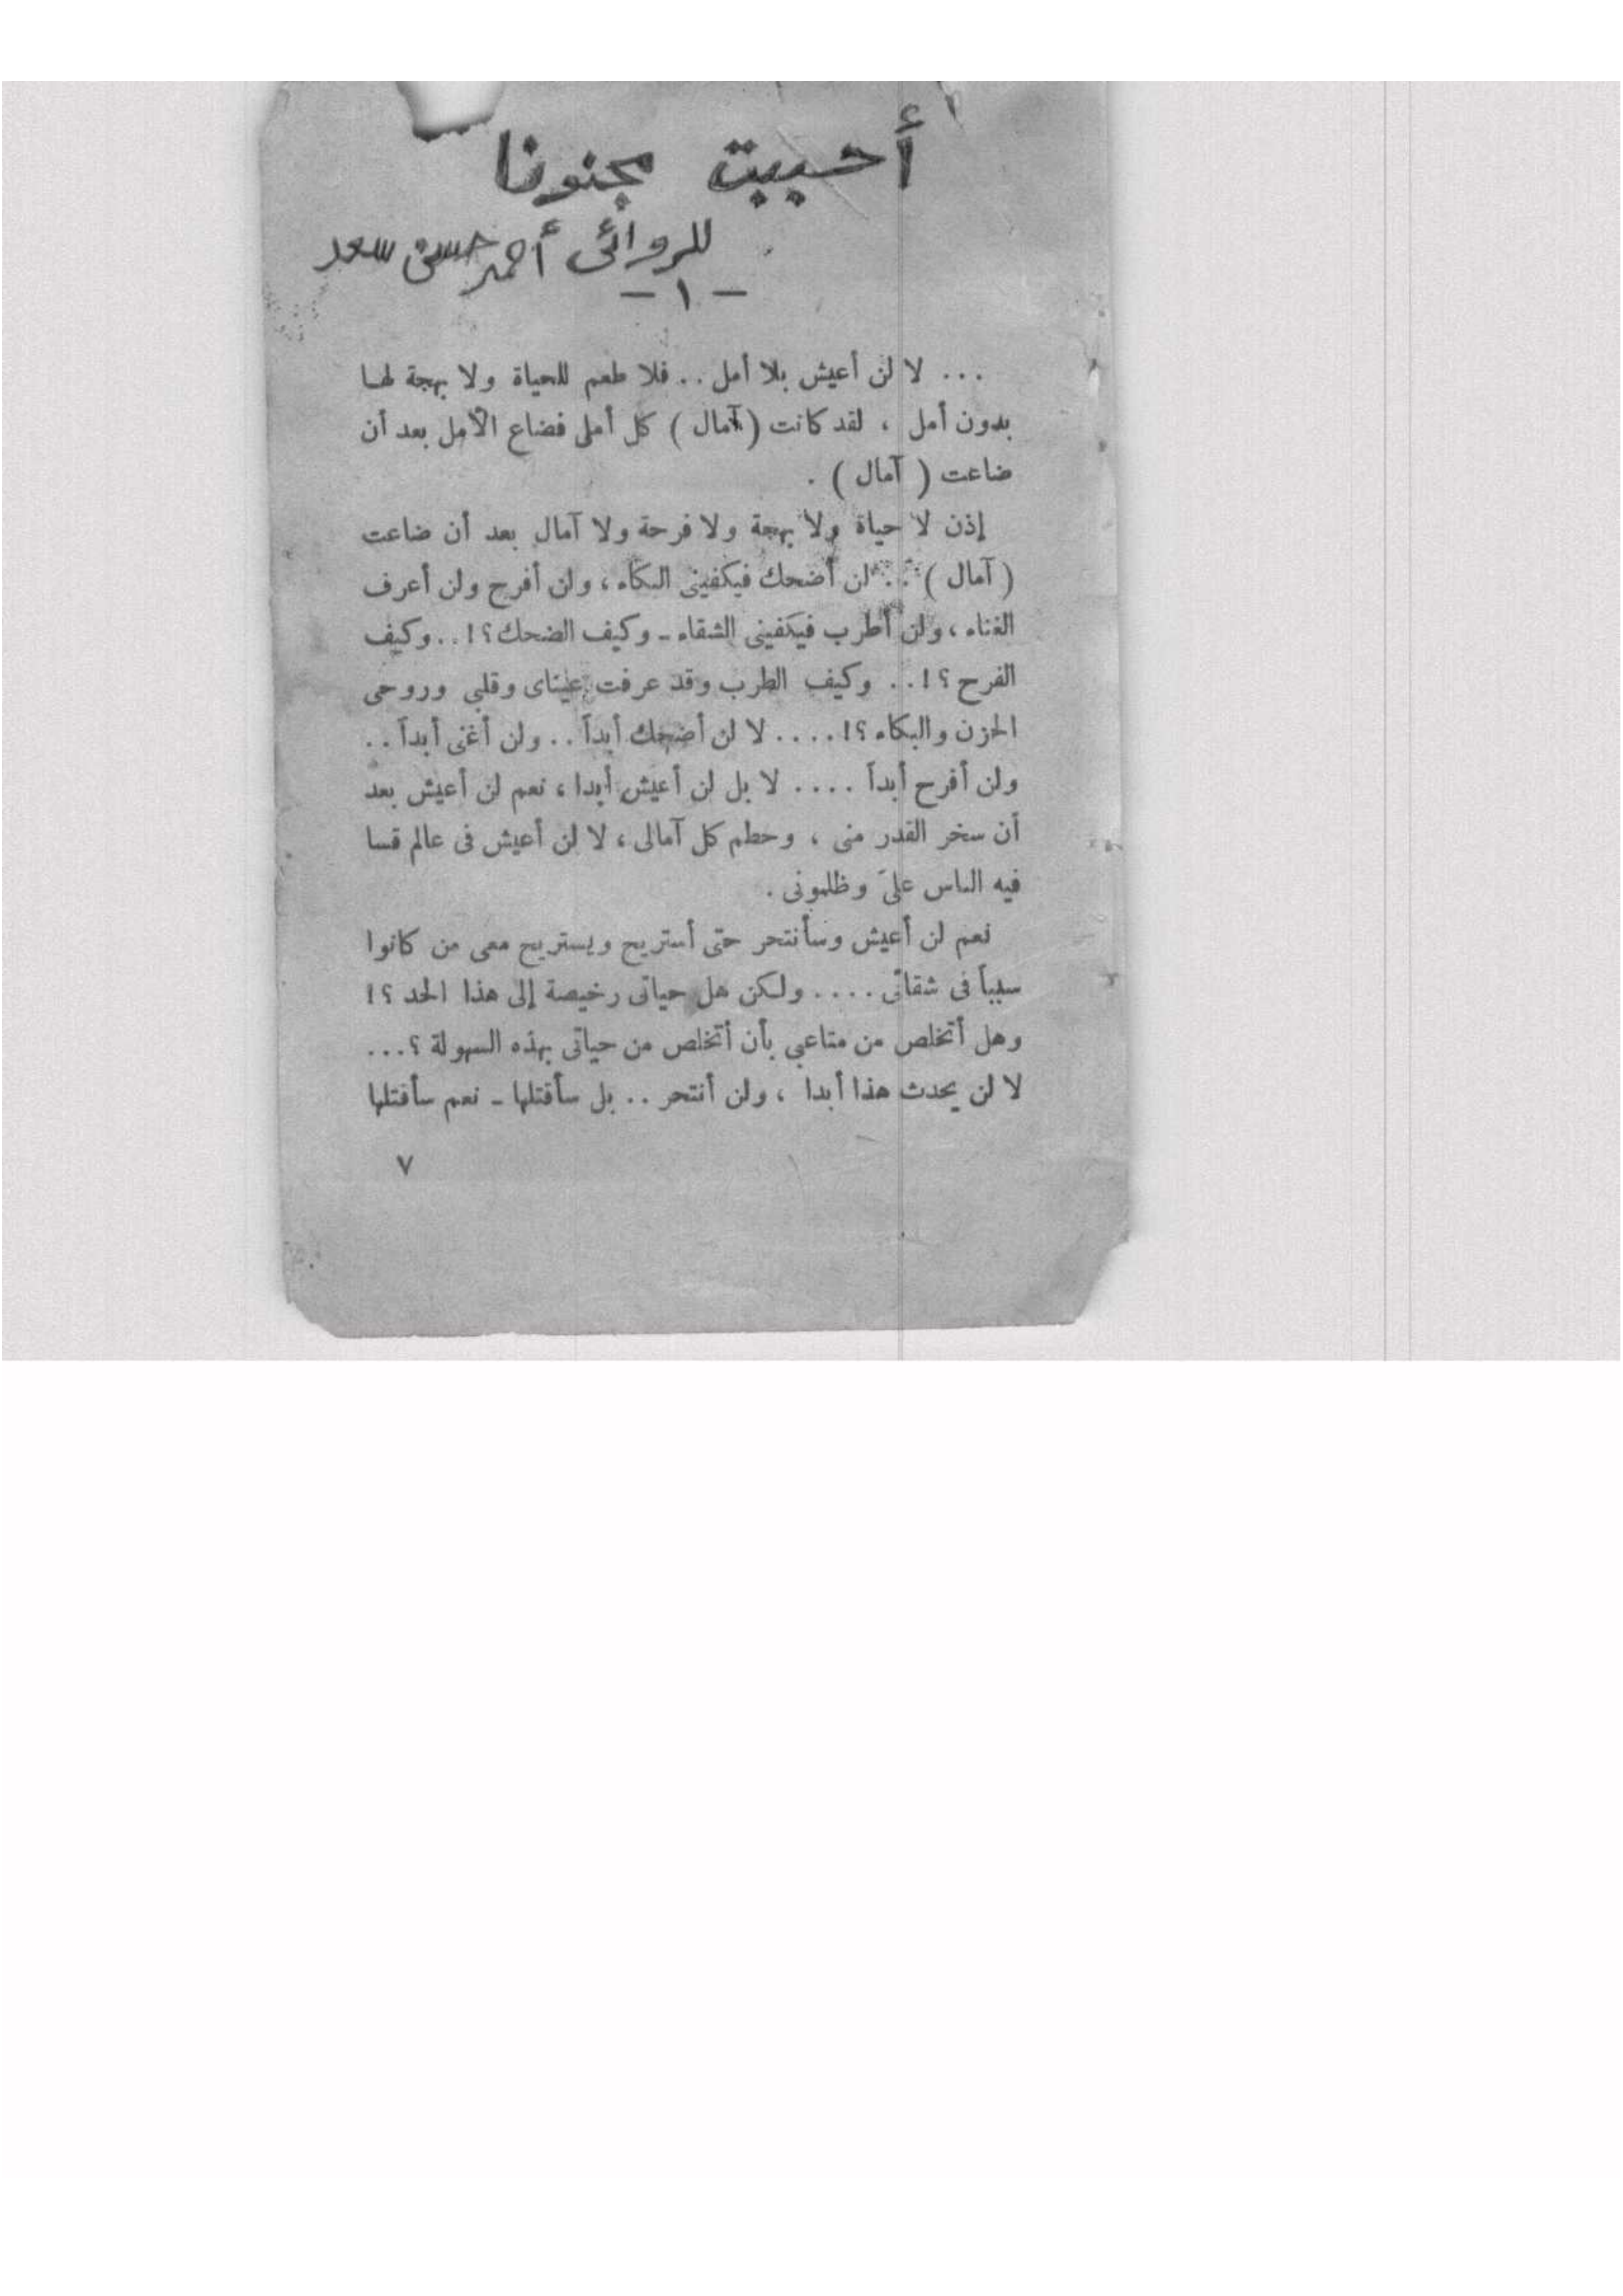 أحببت مجنونا
للروائى أحمد حسن سعد
- ١ -
... لا لن أعيش بلا أمل .. فلا طعم للحياة ولا بهجة لها
بدون أمل ، لقد كانت ( آمال ) كل أملى فضاع الأمل بعد أن
ضاعت ( آمال ) .
إذن لا حياة ولا بهجة ولا فرحة ولا آمال بعد أن ضاعت
( آمال ) .. لن أضحك فيكفينى البكاء ، ولن أفرح ولن أعرف
الغناء ، ولن أطرب فيكفينى الشقاء - وكيف الضحك ؟! .. وكيف
الفرح ؟! .. وكيف الطرب وقد عرفت عيناى وقلبى وروحى
الحزن والبكاء ؟! .... لا لن أضحك أبداً .. ولن أغنى أبداً ..
ولن أفرح أبداً .... لا بل لن أعيش أبدا ، نعم لن أعيش بعد
أن سخر القدر منى ، وحطم كل آمالى ، لا لن أعيش فى عالم قسا
فيه الناس علىّ وظلمونى .
نعم لن أعيش وسأنتحر حتى أستريح ويستريح معى من كانوا
سبباً فى شقائى .... ولكن هل حياتى رخيصة إلى هذا الحد ؟!
وهل أتخلص من متاعبى بأن أتخلص من حياتى بهذه السهولة ؟...
لا لن يحدث هذا أبدا ، ولن أنتحر .. بل سأقتلها - نعم سأقتلها
٧